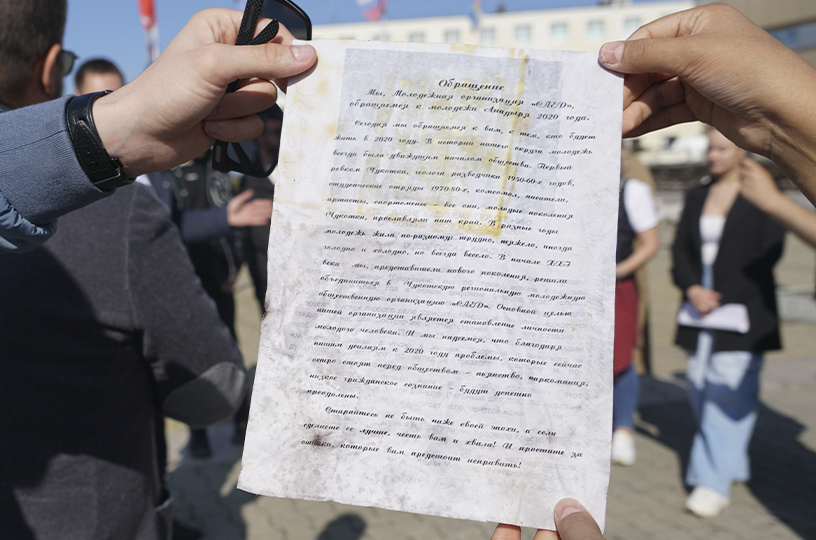 Обращение
Мы, Молодежная организация «СЛЕД»,
обращаемся к молодежи Анадыря 2020 года.
Сегодня мы обращаемся к вам, к тем, кто будет
жить в 2020 году. В истории нашего округа молодежь
всегда была движущим началом общества. Первый
ревком Чукотки, геологи разведчики 1950-60-х годов,
студенческие отряды 1970-80-х, комсомол, писатели,
артисты, спортсмены - все они, молодые поколения
Чукотки, прославляли наш край. В разные годы
молодежь жила по-разному: трудно, тяжело, иногда
голодно и холодно, но всегда весело. В начале XXI
века мы, представители нового поколения, решили
объединиться в Чукотскую региональную молодежную
общественную организацию «СЛЕД». Основной целью
нашей организации является становление личности
молодого человека. И мы надеемся, что благодаря
нашим усилиям к 2020 году проблемы, которые сейчас
остро стоят перед обществом - пьянство, наркомания,
низкое гражданское сознание - будут успешно
преодолены.
Старайтесь не быть ниже своей эпохи, а если
сделаете ее лучше, честь вам и хвала! И простите за
ошибки, которые вам предстоит исправить!